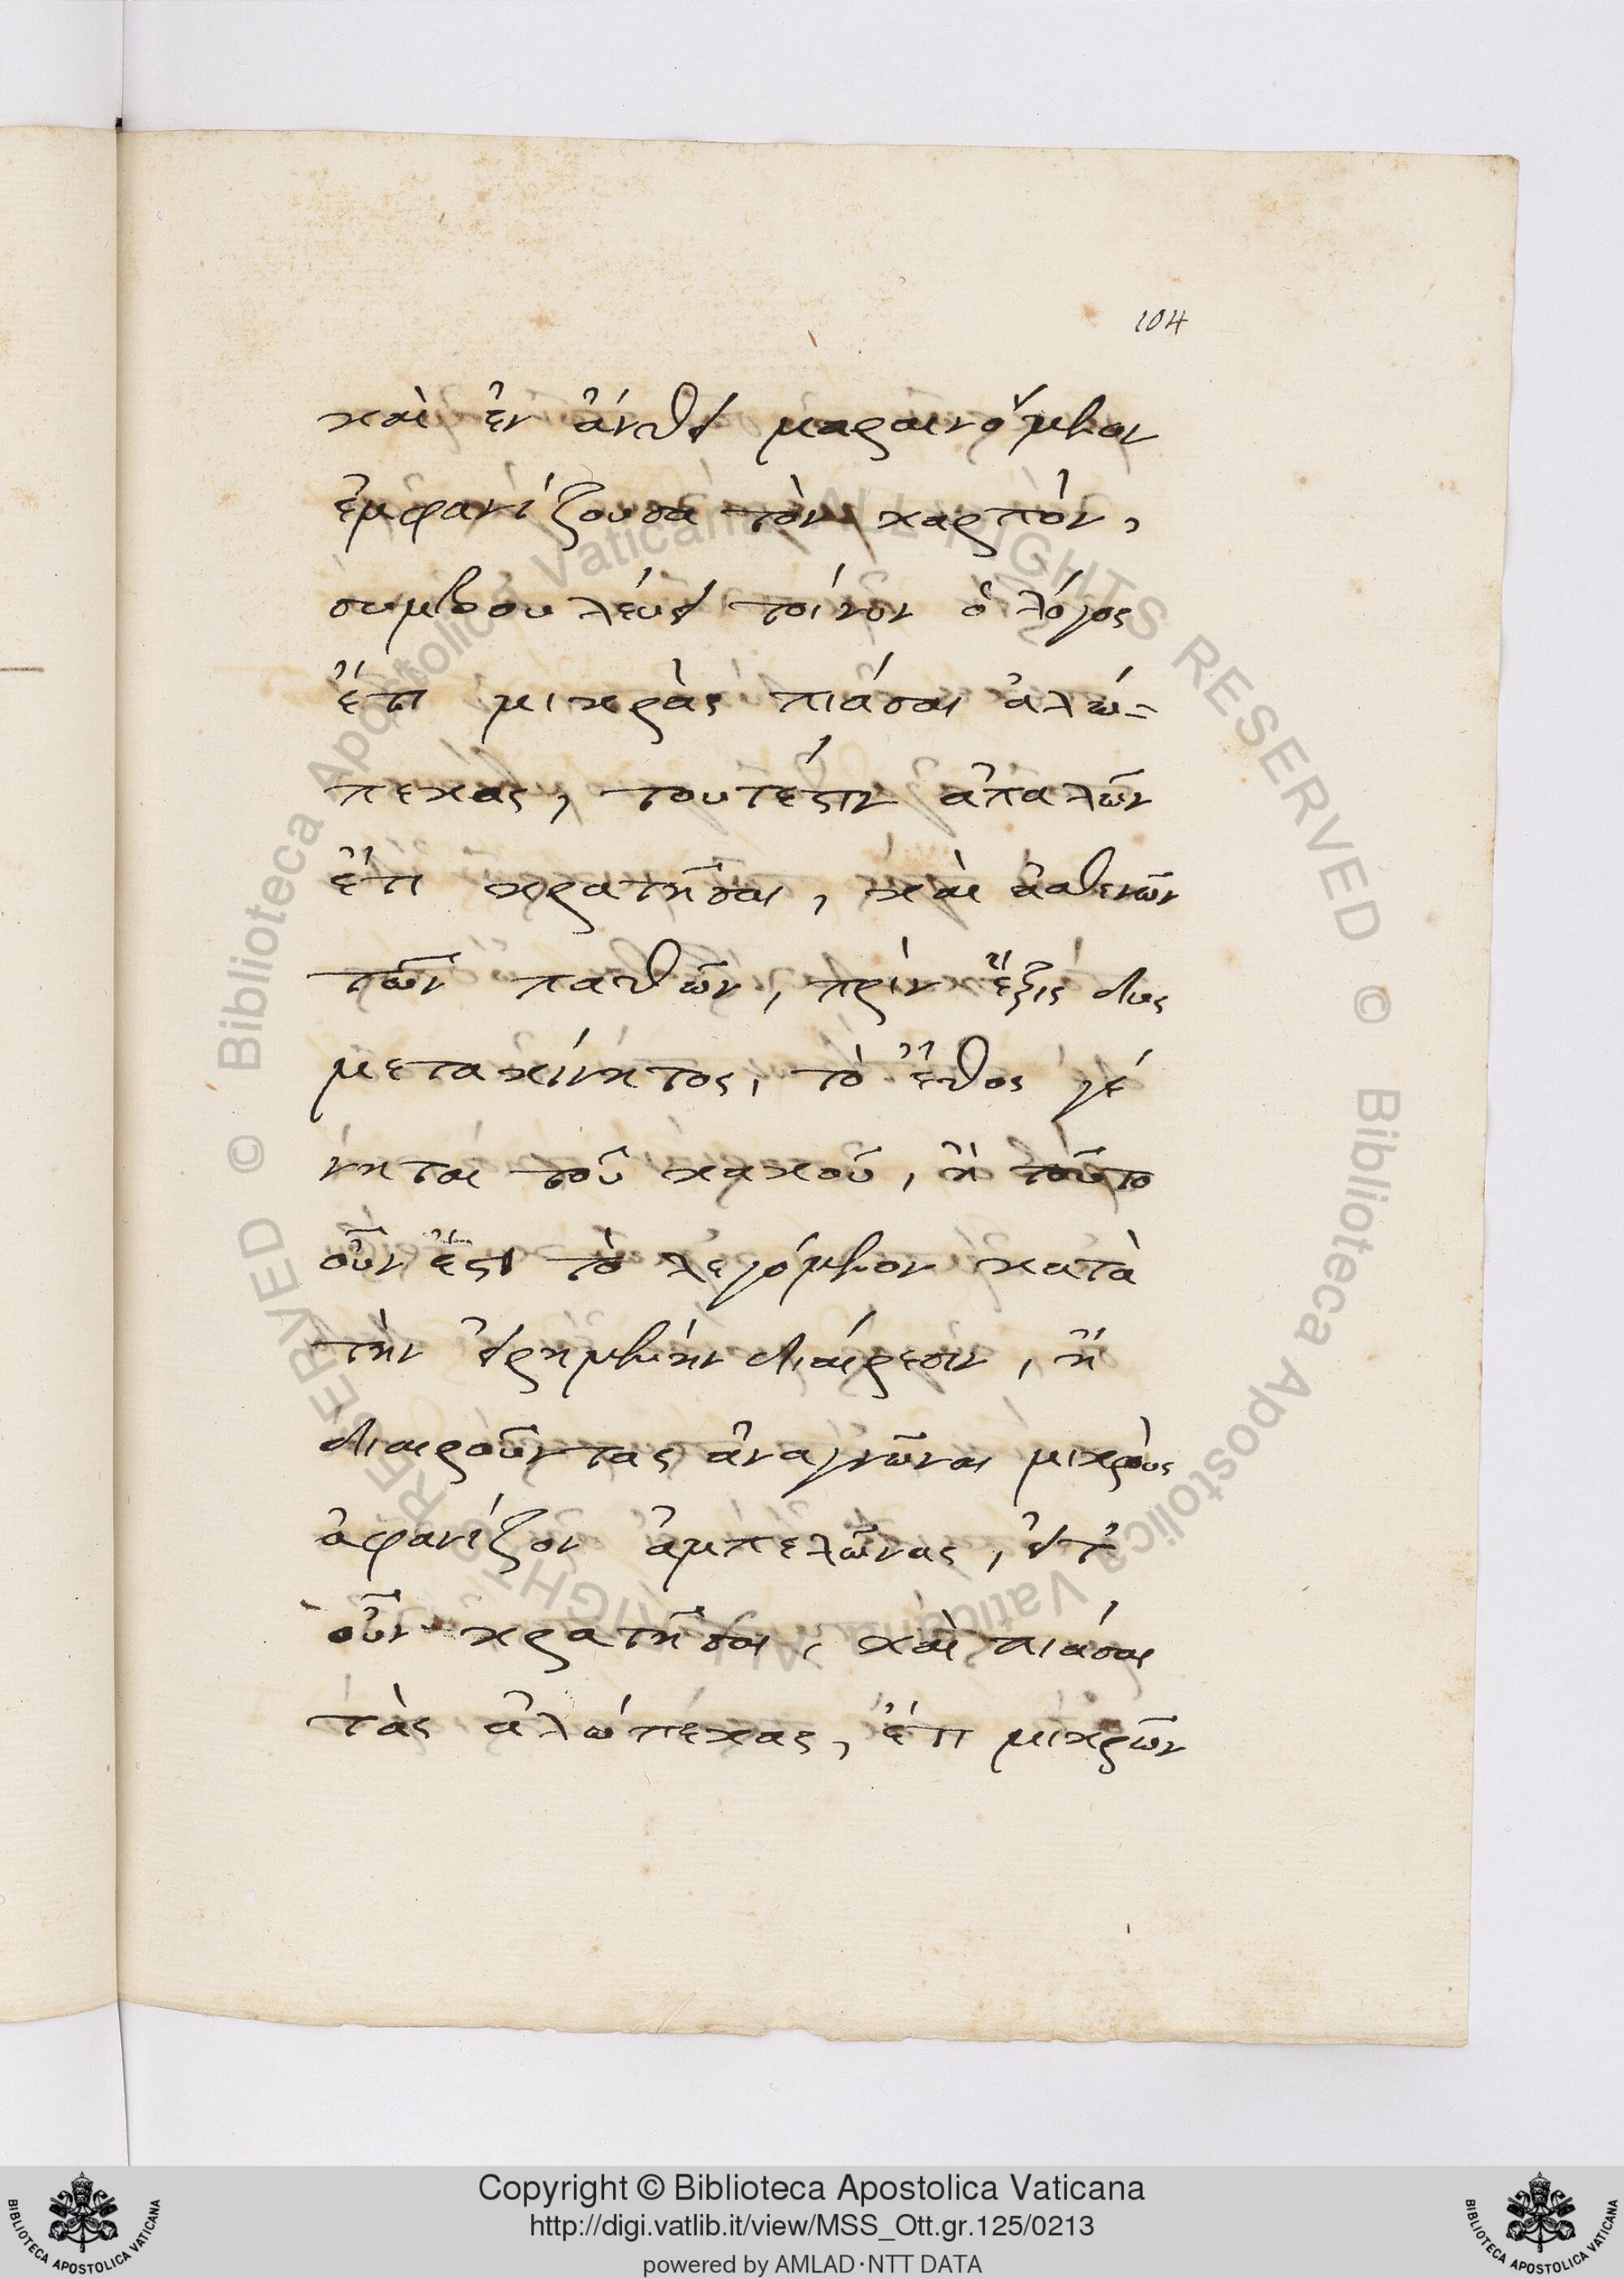 104
καὶ ἐν ἄνθει μαραινόμενον
ἐμφανίζουσα τὸν καρπόν,
συμβουλεύει τοίνυν ὁ λόγος
ἔτι μικρὰς πιάσαι ἀλώ-
πεκας, τουτέστιν ἁπαλῶν
ἔτι κρατῆσαι, καὶ ἀσθενῶν
τῶν παθῶν, πρὶν ἕξις δυς
μετακίνητος, τὸ ἔθος γέ
νηται τοῦ κακοῦ, ἢ τοῦτο
οὖν ἐστι τὸ λεγόμενον κατὰ
τὴν εἰρημένην διαίρεσιν, ἢ
διαιροῦντας ἀναγνῶναι μικροὺς
ἀφανίζον ἀμπελῶνας,
οὖν κρατῆσαι, καὶ πιάσαι
τὰς ἀλώπεκας, ἔτι μικρῶν
© Biblioteca Apostolica Vaticana ALL RIGHTS RESERVED © Biblioteca Apostolica Vaticana ALL RIGHTS RESERVED
BIBLIOTECA APOSTOLICA VATICANA
Copyright © Biblioteca Apostolica Vaticana
http://digi.vatlib.it/view/MSS_Ott.gr.125/0213
powered by AMLAD·NTT DATA
BIBLIOTECA APOSTOLICA VATICANA